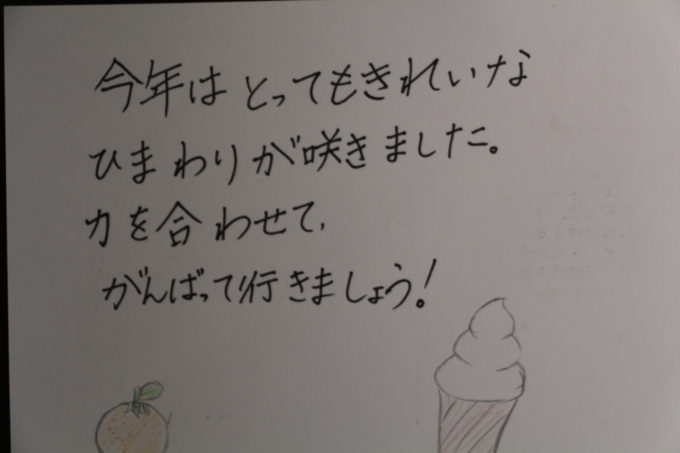 今年はとってもきれいな
ひまわりが咲きました。
力を合わせて、
がんばって行きましょう!